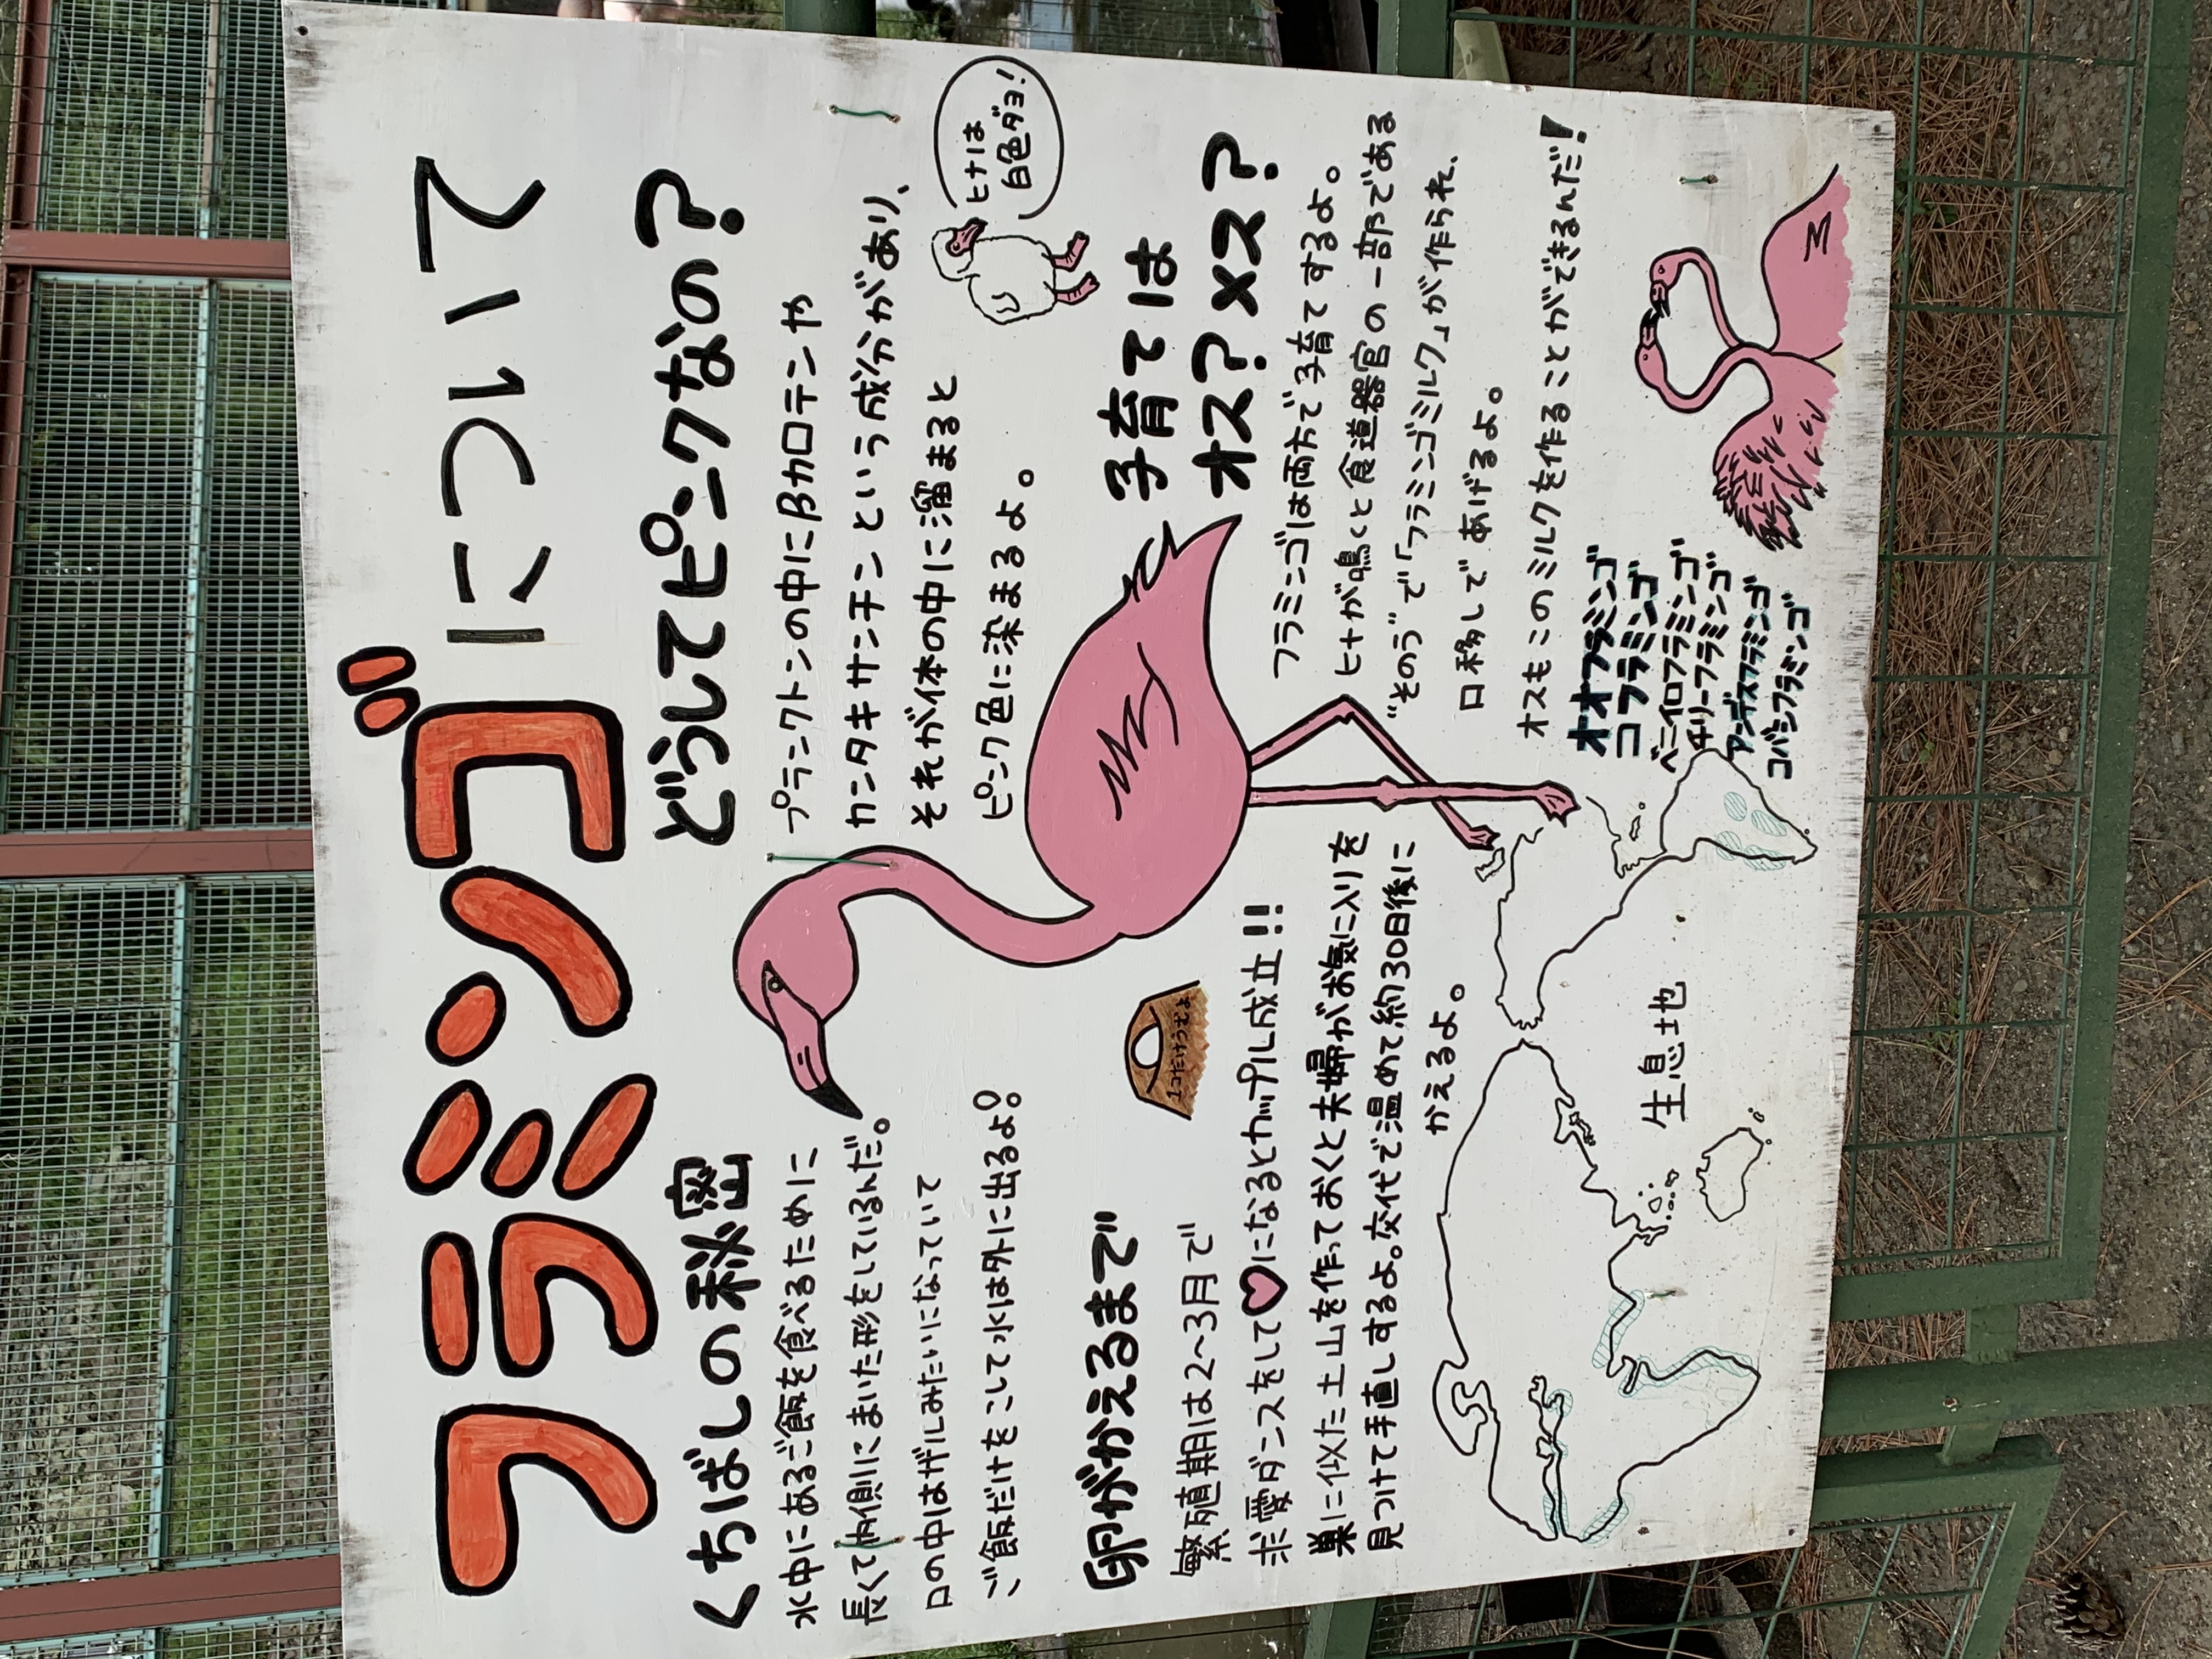 フラミンゴについて
くちばしの秘密
水中にあるご飯を食べるために
長くて内側にまいた形をしているんだ。
口の中はザルみたいになっていて
ご飯だけをこして水は外に出るよ。
どうしてピンクなの?
プランクトンの中にβカロテンや
カンタキサンチンという成分があり、
それが体の中に溜まると
ピンク色に染まるよ。
ヒナは
白色ダヨ!
卵がかえるまで
繁殖期は2~3月で
求愛ダンスをして♥になるとカップル成立!!
巣に似た土山を作っておくと夫婦がお気に入りを
見つけて手直しするよ。交代で温めて約30日後に
かえるよ。
1コだけうむよ
子育ては
オス?メス?
フラミンゴは両方で子育てするよ。
ヒナが鳴くと食道器官の一部である
"そのう"で「フラミンゴミルク」が作られ、
口移しであげるよ。
オスもこのミルクを作ることができるんだ!
オオフラミンゴ
コフラミンゴ
ベニイロフラミンゴ
チリーフラミンゴ
アンデスフラミンゴ
コバシフラミンゴ
生息地